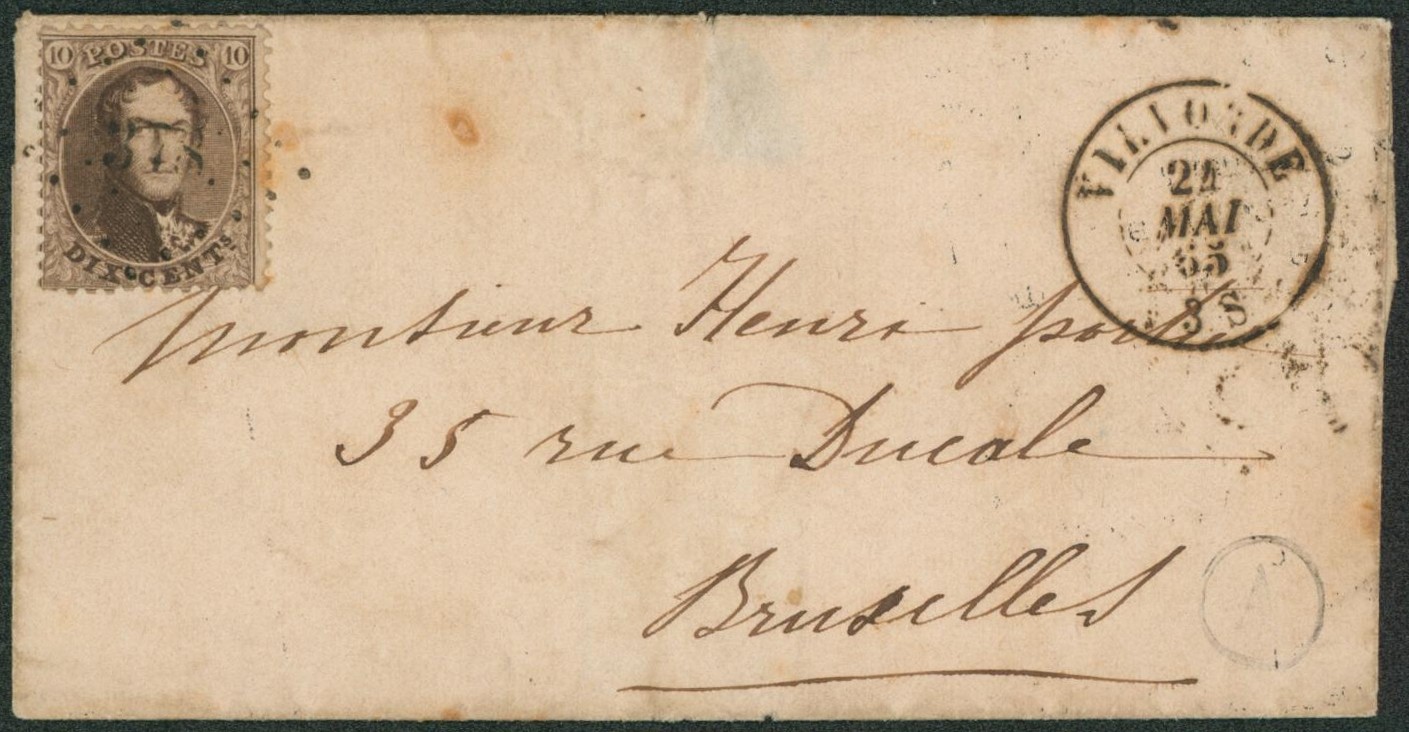 10 POSTES 10
DIX CENTS
VILVORDE
MAI
65
3 S
monsieur Henri
35 rue Ducale
Bruxelles
A